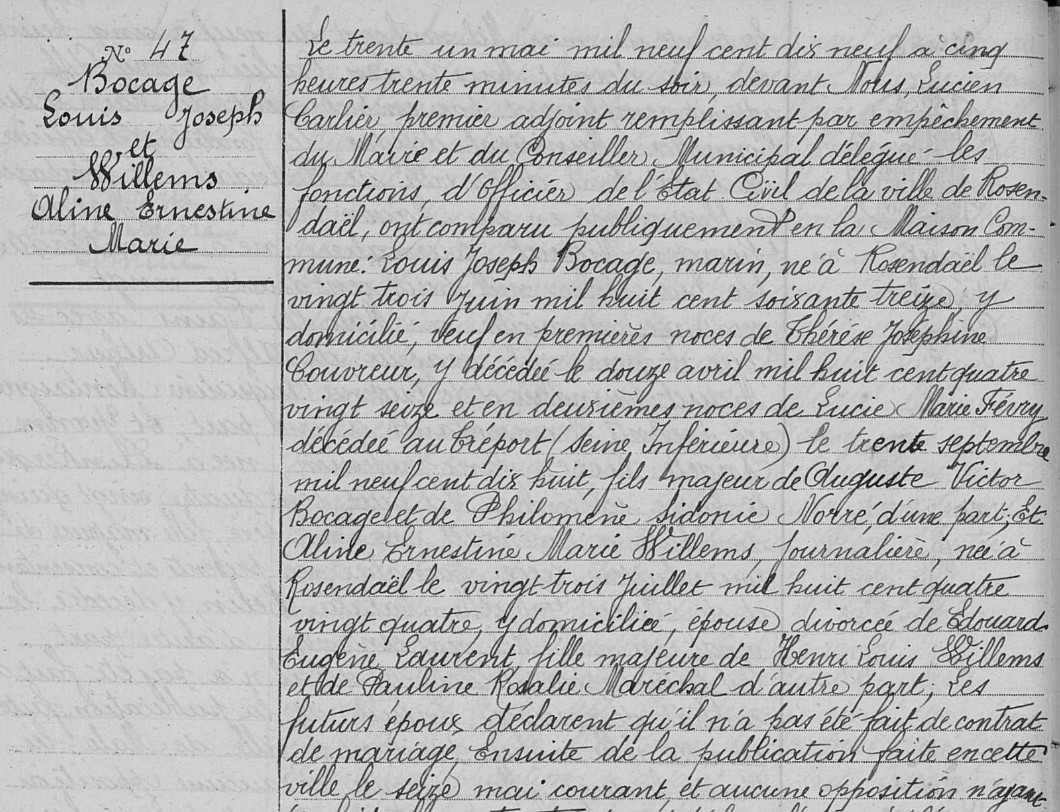 N° 47
Bocage
Louis Joseph
et
Willems
Aline Ernestine
Marie
Le trente un mai mil neuf cent dix neuf à cinq
heures trente minutes du soir, devant Nous, Lucien
Carlier, premier adjoint remplissant par empêchement
du Maire et du Conseiller Municipal délégué les
fonctions, d'Officier de l'Etat Civil de la ville de Rosen-
daël, ont comparu publiquement en la Maison Com-
mune: Louis Joseph Bocage, marin, né à Rosendaël le
vingt trois Juin mil huit cent soixante treize, y
domicilié, veuf en premières noces de Thérèse Joséphine
Couvreur, y décédée le douze avril mil huit cent quatre
vingt seize et en deuxièmes noces de Lucie Marie Févry
décédée au Tréport (Seine Inférieure) le trente septembre
mil neuf cent dix huit, fils majeur de Auguste Victor
Bocage et de Philomène Sidonie Norré d'une part; Et
Aline Ernestine Marie Willems, journalière, née à
Rosendaël le vingt trois Juillet mil huit cent quatre
vingt quatre, y domiciliée, épouse divorcée de Edouard
Eugène Laurent, fille majeure de Henri Louis Willems
et de Pauline Rosalie Maréchal d'autre part; Les
futurs époux déclarent qu'il n'a pas été fait de contrat
de mariage, Ensuite de la publication faite en cette
ville le seize mai courant et aucune opposition n'ayant